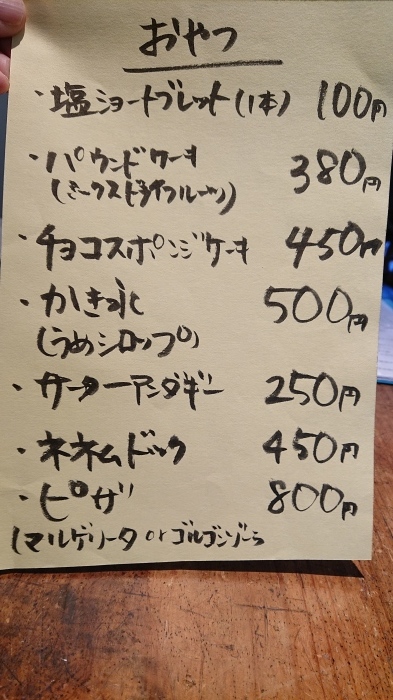 おやつ
・塩ショートブレット(1本) 100円
・パウンドケーキ 380円
(ミックスドライフルーツ)
・チョコスポンジケーキ 450円
・かき氷 500円
(うめシロップ)
・サーターアンダギー 250円
・ネネムドック 450円
・ピザ 800円
(マルゲリータ or ゴルゴンゾーラ